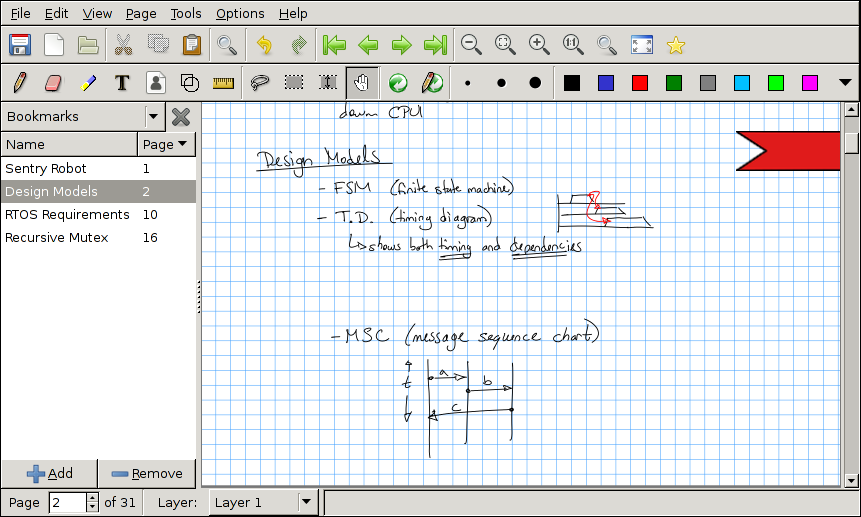 File Edit View Page Tools Options Help
1:1
T
Bookmarks
Name Page
Sentry Robot 1
Design Models 2
RTOS Requirements 10
Recursive Mutex 16
Add Remove
down CPU
Design Models
- FSM (finite state machine)
- T.D. (timing diagram)
↳ shows both timing and dependencies
- MSC (message sequence chart)
t
a
b
c
Page 2 of 31 Layer: Layer 1